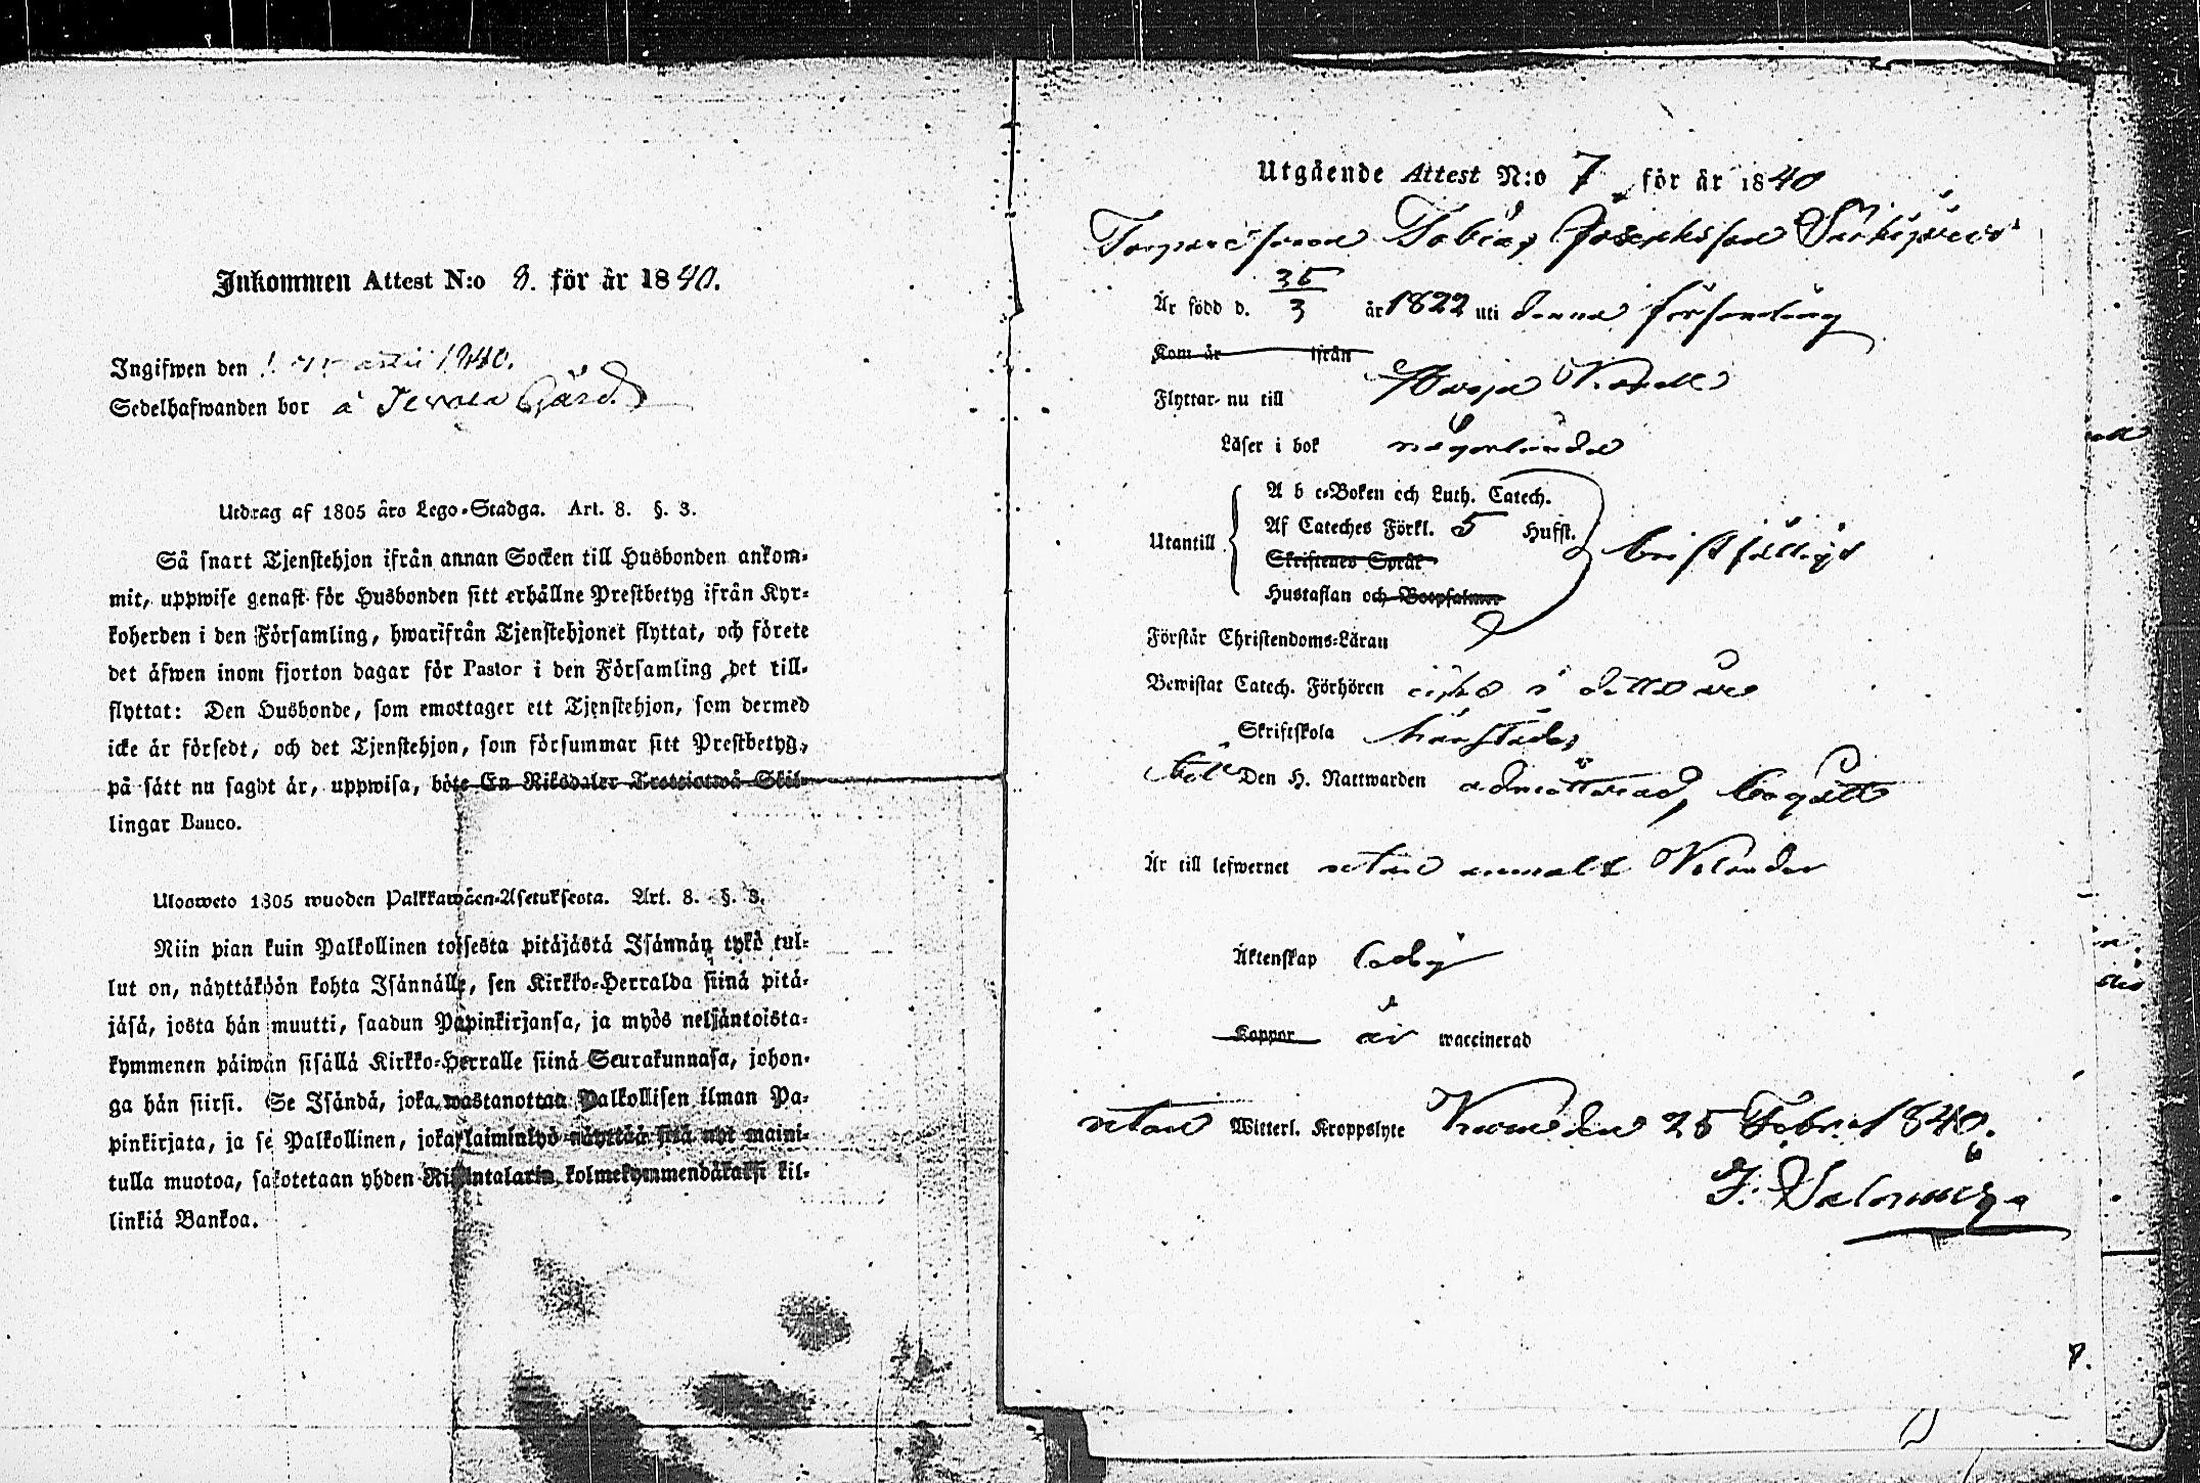 Inkommen Attest N:o 8. för år 1840.
Ingifwen den 1840.
Sedelhafwanden bor å Gård
Utdrag af 1805 års Lego-Stadga. Art. 8. §. 3.
Så snart Tjenstehjon ifrån annan Socken till Husbonden ankom-
mit, uppwise genast för Husbonden sitt erhållne Prestbetyg ifrån Kyr-
koherden i den Församling, hwarifrån Tjenstehjonet flyttat, och förete
det äfwen inom fjorton dagar för Pastor i den Församling det till-
flyttat: Den Husbonde, som emottager ett Tjenstehjon, som dermed
icke är försedt, och det Tjenstehjon, som försummar sitt Prestbetyg,
på sätt nu sagdt är, uppwisa, böte En Riksdaler Trettiotwå Skil-
lingar Banco.
Ulosweto 1805 wuoden Palkkawäen-Asetuksesta. Art. 8. §. 3.
Niin pian kuin Palkollinen toisesta pitäjästä Isännän tykö tul-
lut on, näyttäköön kohta Isännälle, sen Kirkko-Herralda siinä pitä-
jäsä, josta hän muutti, saadun Papinkirjansa, ja myös neljäntoista-
kymmenen päiwän sisällä Kirkko-Herralle siinä Seurakunnasa, johon-
ga hän siirsi. Se Isändä, joka wastanottaa Palkollisen ilman Pa-
pinkirjata, ja se Palkollinen, joka laiminlyö näyttää sitä nyt maini-
tulla muotoa, sakotetaan yhden Riksintalarin kolmekymmendäkaksi kil-
linkiä Bankoa.
Utgående Attest N:o 7 för år 1840
Tobias Josephsson
Är född d. 3 år 1822 uti denna församling
Kom år ifrån
Flyttar nu till
Läser i bok någorlunda
Utantill
A b c-Boken och Luth. Catech.
Af Cateches Förkl. 5 Hufst.
Skriftenes Språk
Hustaflan och Botpsalmer
bristfälligt
Förstår Christendoms-Läran
Bewistat Catech. Förhören i detta år
Skriftskola
Den H. Nattwarden admitterad, begått
Är till lefwernet utan anmält
Äktenskap ledig
Koppor är waccinerad
utan Witterl. Kroppslyte 25 Febr. 1840.